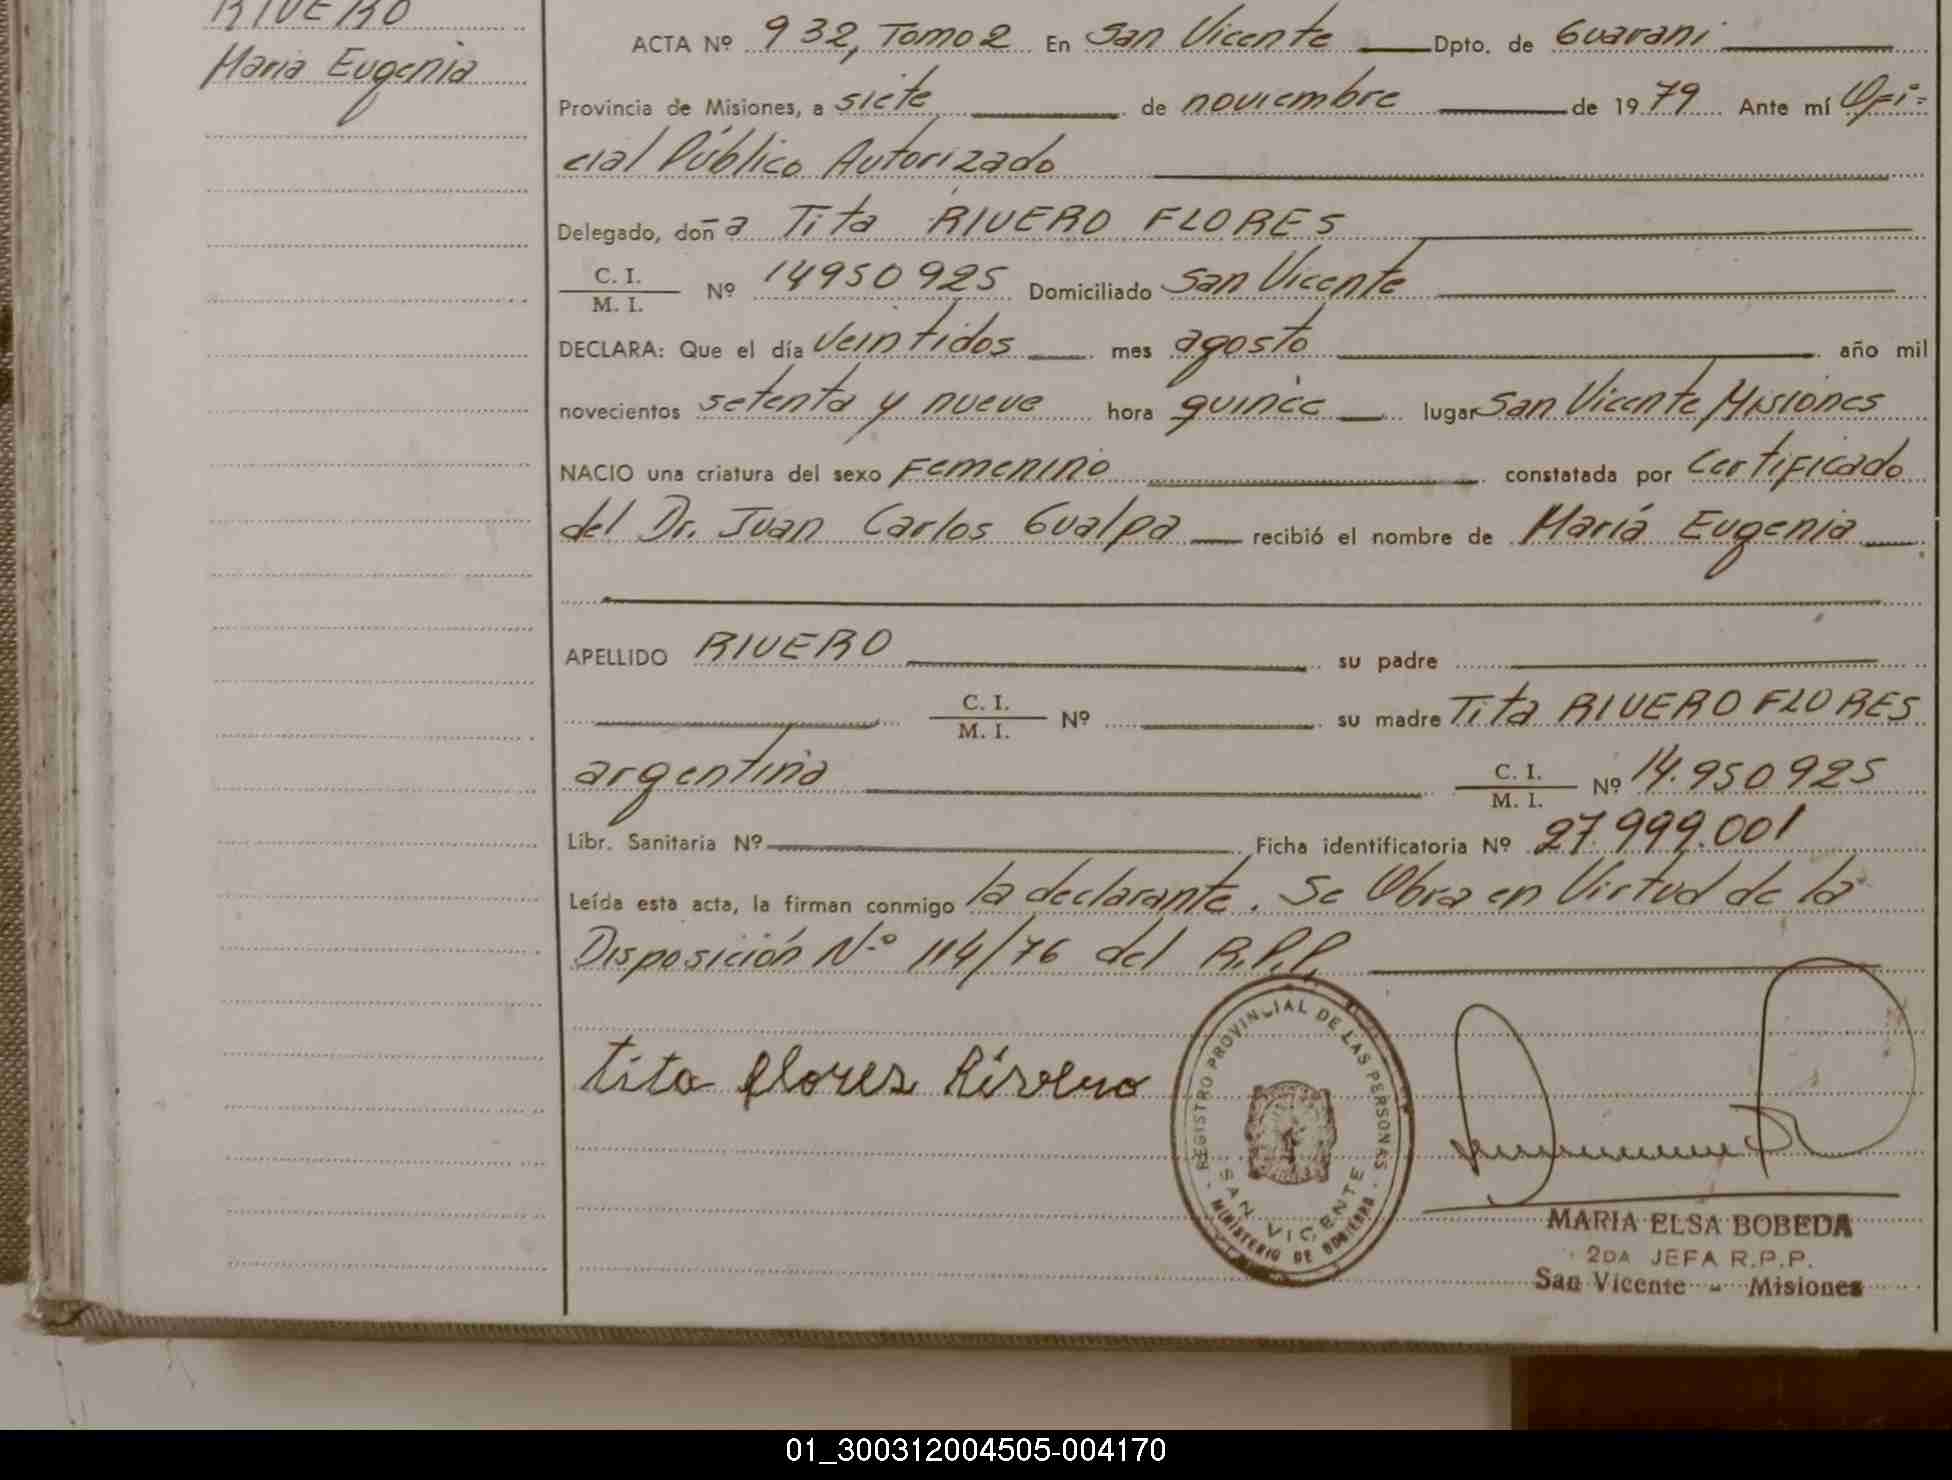 RIVERO
Maria Eugenia
ACTA Nº 932, Tomo 2 En San Vicente Dpto. de Guarani
Provincia de Misiones, a siete de noviembre de 1979 Ante mí Ofi-
cial Público Autorizado
Delegado, doña Tita RIVERO FLORES
C. I.
M. I. Nº 14950925 Domiciliado San Vicente
DECLARA: Que el día veintidos mes agosto año mil
novecientos setenta y nueve hora quince lugar San Vicente, Misiones
NACIO una criatura del sexo Femenino constatada por Certificado
del Dr. Juan Carlos Gualpa recibió el nombre de María Eugenia
APELLIDO RIVERO su padre
C. I.
M. I. Nº su madre Tita RIVERO FLORES
argentina C. I.
M. I. Nº 14.950925
Libr. Sanitaria Nº Ficha identificatoria Nº 27.999.001
Leída esta acta, la firman conmigo la declarante. Se Obra en Virtud de la
Disposición N.º 114/76 del R.P.P.
tita flores Rivero
REGISTRO PROVINCIAL DE LAS PERSONAS
SAN VICENTE
MINISTERIO DE GOBIERNO
MARIA ELSA BOBEDA
2DA JEFA R.P.P.
San Vicente - Misiones
01_300312004505-004170